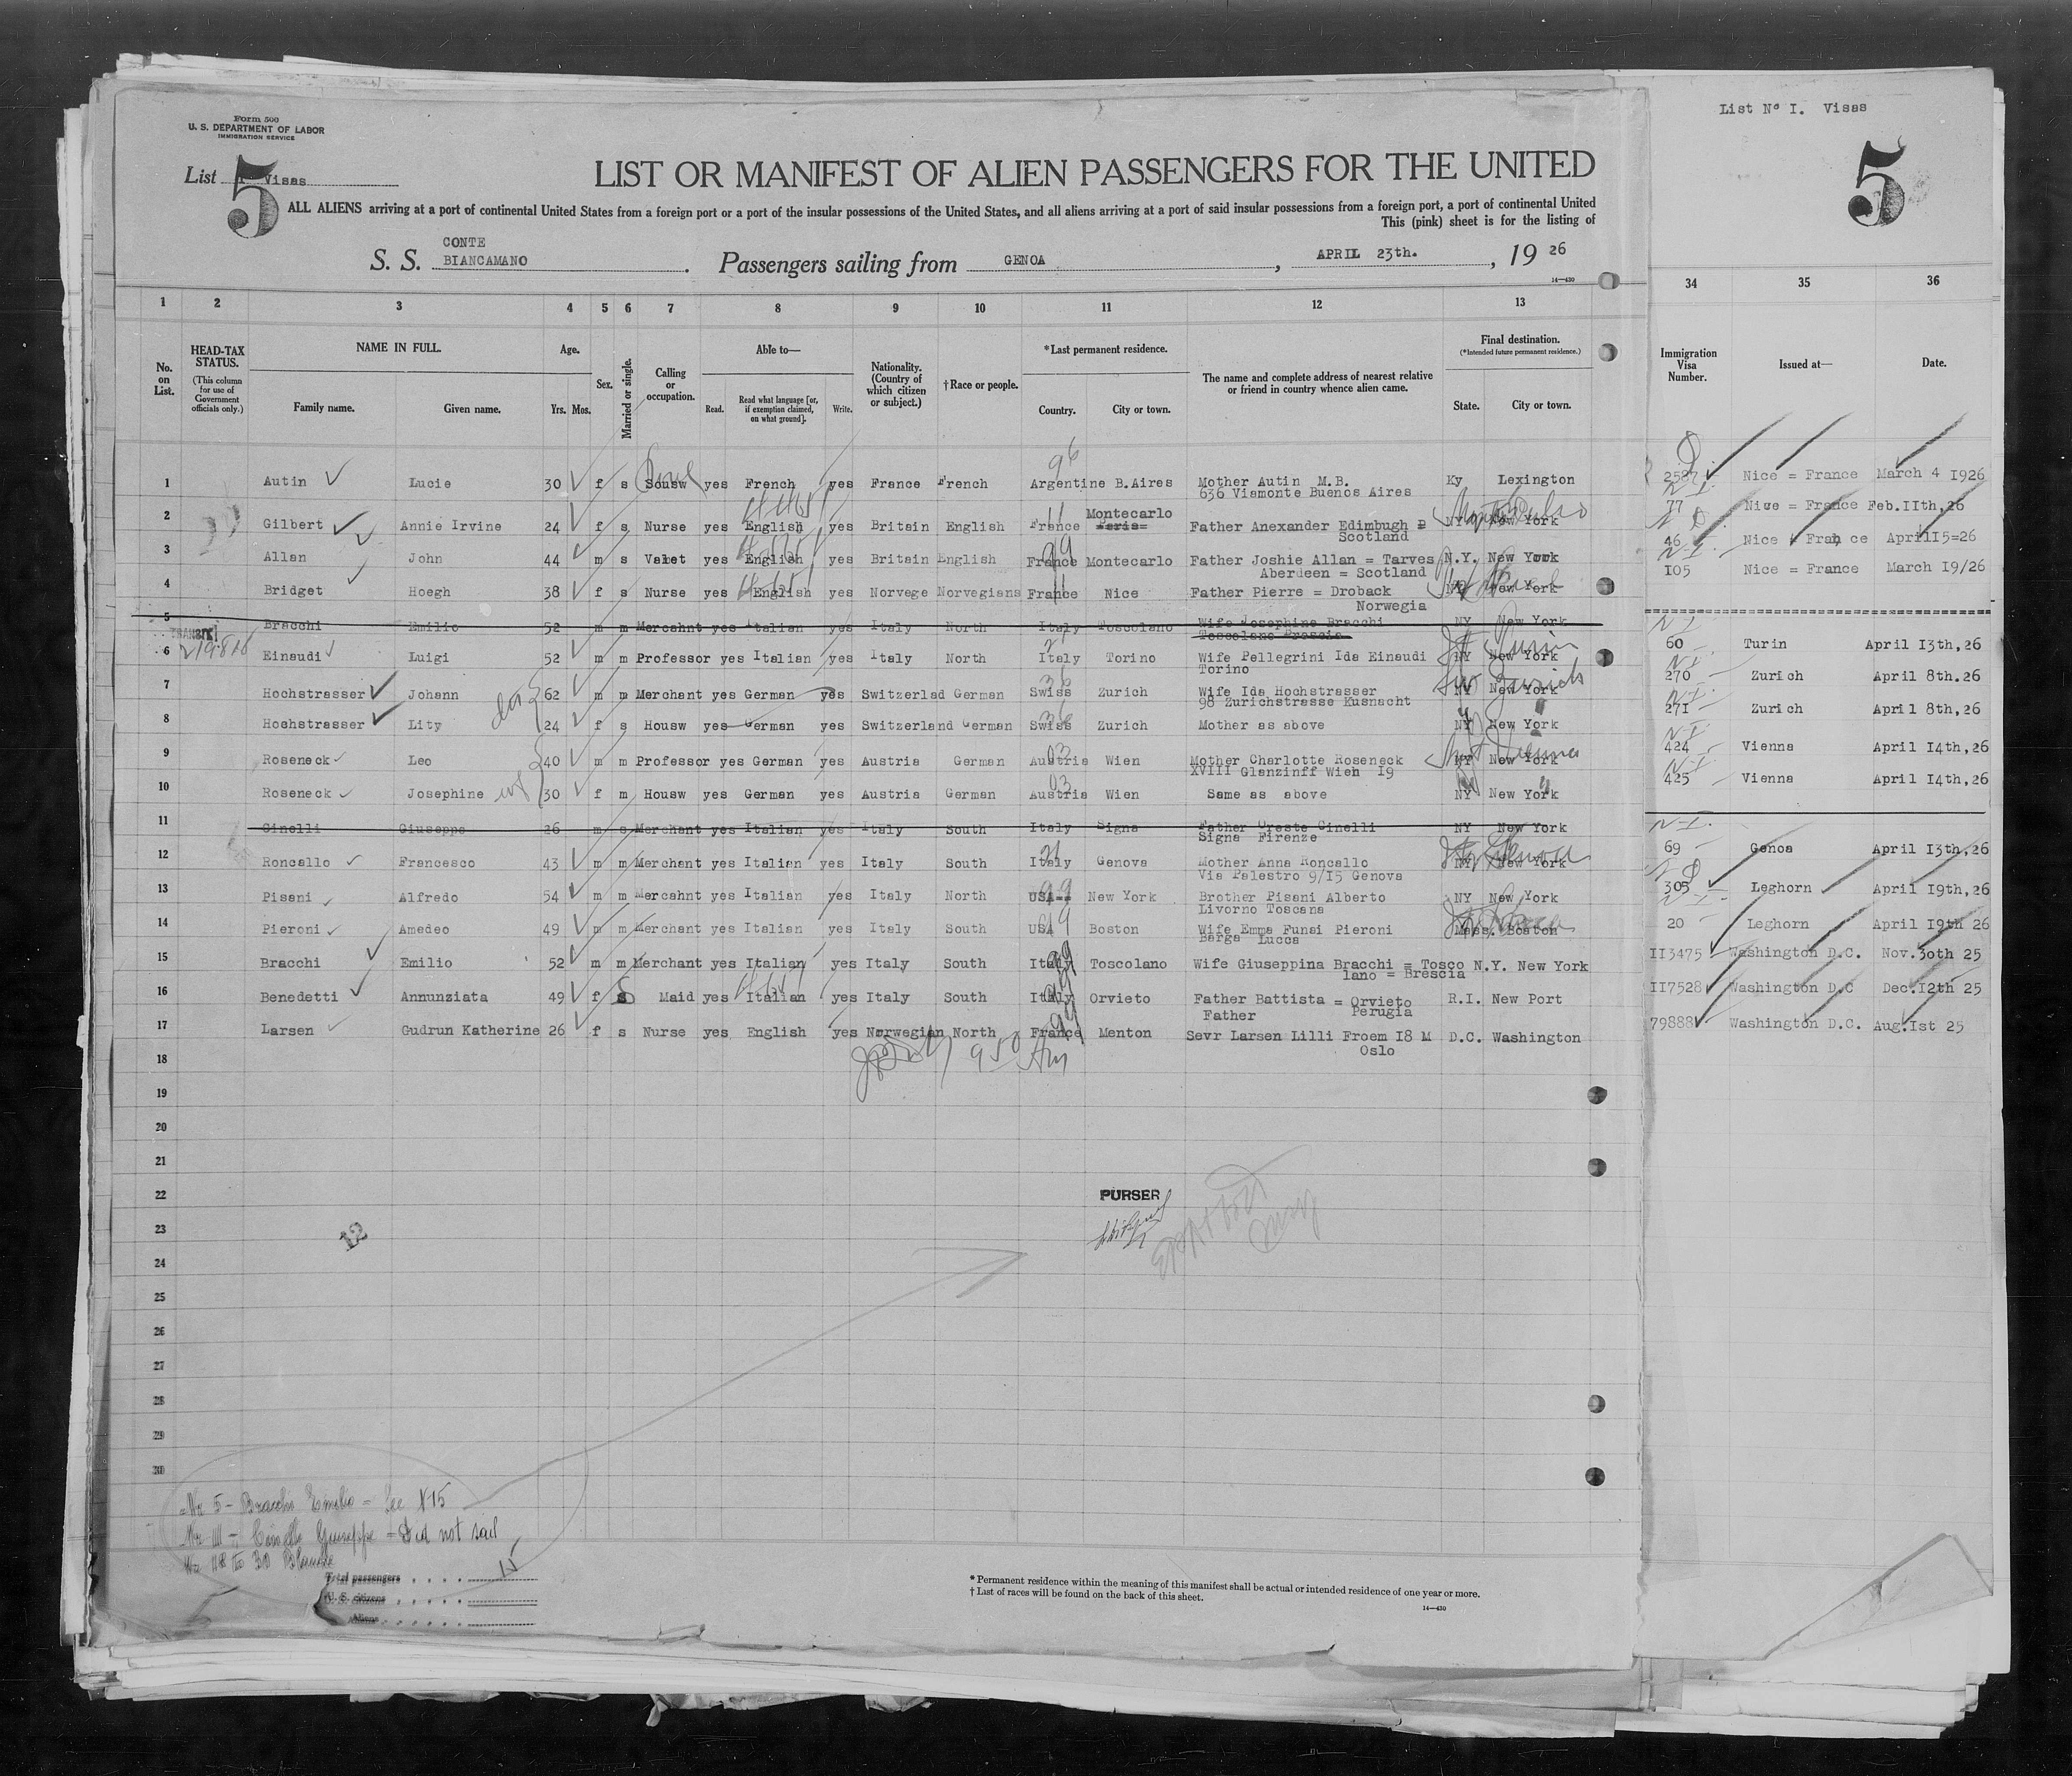 Form 500
U. S. DEPARTMENT OF LABOR
IMMIGRATION SERVICE
List Visas
5
LIST OR MANIFEST OF ALIEN PASSENGERS FOR THE UNITED
ALL ALIENS arriving at a port of continental United States from a foreign port or a port of the insular possessions of the United States, and all aliens arriving at a port of said insular possessions from a foreign port, a port of continental United
This (pink) sheet is for the listing of
S. S. CONTE BIANCAMANO. Passengers sailing from GENOA, APRIL 23th., 19 26
14—430
1 2 3 4 5 6 7 8 9 10 11 12 13
No. on List.
HEAD-TAX STATUS.
(This column for use of Government officials only.)
NAME IN FULL.
Family name. Given name.
Age.
Yrs. Mos.
Sex.
Married or single.
Calling or occupation.
Able to—
Read. Read what language [or, if exemption claimed, on what ground]. Write.
Nationality. (Country of which citizen or subject.)
†Race or people.
*Last permanent residence.
Country. City or town.
The name and complete address of nearest relative or friend in country whence alien came.
Final destination.
(*Intended future permanent residence.)
State. City or town.
1 Autin Lucie 30 f s Housw yes French yes France French Argentine B.Aires Mother Autin M.B. Ky Lexington
636 Viamonte Buenos Aires
2 Gilbert Annie Irvine 24 f s Nurse yes English yes Britain English France Montecarlo Paris Father Anexander Edimbugh NY New York
Scotland
3 Allan John 44 m s Valet yes English yes Britain English France Montecarlo Father Joshie Allan = Tarves N.Y. New York
Aberdeen = Scotland
4 Bridget Hoegh 38 f s Nurse yes English yes Norvege Norvegians France Nice Father Pierre = Droback NY New York
Norwegia
5 Bracchi Emilio 52 m m Mercahnt yes Italian yes Italy North Italy Toscolano Wife Josephine Bracchi NY New York
Toscolano Brescia
TRANSIT
6 Einaudi Luigi 52 m m Professor yes Italian yes Italy North Italy Torino Wife Pellegrini Ida Einaudi NY New York
Torino
7 Hochstrasser Johann 62 m m Merchant yes German yes Switzerlad German Swiss Zurich Wife Ida Hochstrasser NY New York
98 Zurichstrasse Kusnacht
8 Hochstrasser Lity 24 f s Housw yes German yes Switzerland German Swiss Zurich Mother as above NY New York
9 Roseneck Leo 40 m m Professor yes German yes Austria German Austria Wien Mother Charlotte Roseneck NY New York
XVIII Glanzinff Wien I9
10 Roseneck Josephine 30 f m Housw yes German yes Austria German Austria Wien Same as above NY New York
11 Cinelli Giuseppe 26 m s Merchant yes Italian yes Italy South Italy Signa Father Oreste Cinelli NY New York
Signa Firenze
12 Roncallo Francesco 43 m m Merchant yes Italian yes Italy South Italy Genova Mother Anna Roncallo NY New York
Via Palestro 9/I5 Genova
13 Pisani Alfredo 54 m m Mercahnt yes Italian yes Italy North USA New York Brother Pisani Alberto NY New York
Livorno Toscana
14 Pieroni Amedeo 49 m m Merchant yes Italian yes Italy South USA Boston Wife Emma Funai Pieroni Mass. Boston
Barga Lucca
15 Bracchi Emilio 52 m m Merchant yes Italian yes Italy South Italy Toscolano Wife Giuseppina Bracchi = Tosco N.Y. New York
lano = Brescia
16 Benedetti Annunziata 49 f s Maid yes Italian yes Italy South Italy Orvieto Father Battista = Orvieto R.I. New Port
Father Perugia
17 Larsen Gudrun Katherine 26 f s Nurse yes English yes Norwegian North France Menton Sevr Larsen Lilli Froem I8 M D.C. Washington
Oslo
18
950 Am
19
20
21
22
PURSER
23
12
24
25
26
27
28
29
30
Nr 5 - Bracchi Emilio = See N15
Nr 11 - Cinelli Giuseppe = Did not sail
Nr 18 to 30 Blank
Total passengers 15
U. S. citizens
Aliens
* Permanent residence within the meaning of this manifest shall be actual or intended residence of one year or more.
† List of races will be found on the back of this sheet.
14—430
List Nº I. Visas
5
34 35 36
Immigration Visa Number. Issued at— Date.
2587 Nice = France March 4 I926
77 Nice = France Feb.IIth,26
46 Nice France AprilI5=26
I05 Nice = France March I9/26
60 Turin April I3th,26
270 Zurich April 8th.26
27I Zurich April 8th,26
424 Vienna April I4th,26
425 Vienna April I4th,26
69 Genoa April I3th,26
305 Leghorn April I9th,26
20 Leghorn April I9th 26
II3475 Washington D.C. Nov.3oth 25
II7528 Washington D.C Dec.I2th 25
79888 Washington D.C. Aug.Ist 25